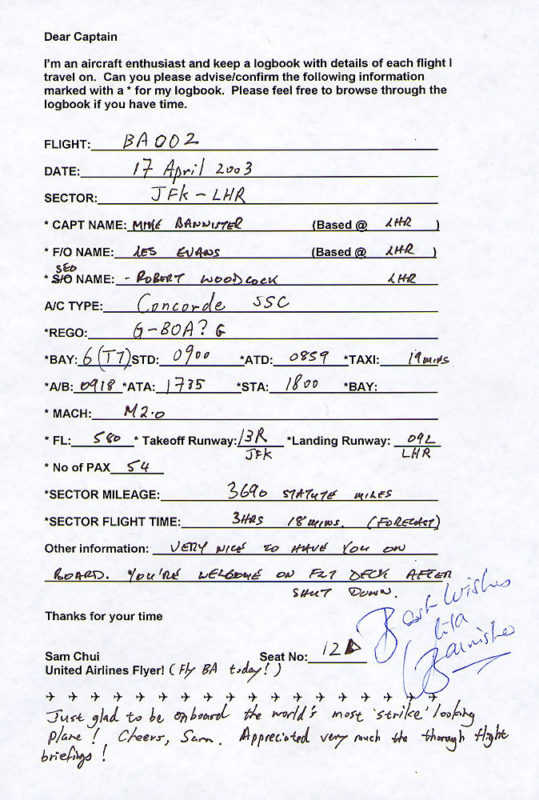 Dear Captain
I'm an aircraft enthusiast and keep a logbook with details of each flight I
travel on. Can you please advise/confirm the following information
marked with a * for my logbook. Please feel free to browse through the
logbook if you have time.
FLIGHT: BA002
DATE: 17 April 2003
SECTOR: JFK - LHR
* CAPT NAME: MIKE BANNISTER (Based @ LHR )
* F/O NAME: LES EVANS (Based @ LHR )
SEO
* S/O NAME: - ROBERT WOODCOCK LHR
A/C TYPE: Concorde SSC
*REGO: G-BOA? G
*BAY: 6 (T7) STD: 0900 *ATD: 0859 *TAXI: 19 mins
*A/B: 0918 *ATA: 1735 *STA: 1800 *BAY:
* MACH: M2.0
* FL: 580 * Takeoff Runway: 13R *Landing Runway: 09L
JFK LHR
* No of PAX 54
*SECTOR MILEAGE: 3690 STATUTE MILES
*SECTOR FLIGHT TIME: 3HRS 18 mins. (FORECAST)
Other information: VERY NICE TO HAVE YOU ON
BOARD. YOU'RE WELCOME ON FLT DECK AFTER
SHUT DOWN.
Thanks for your time
Best Wishes
Bannister
Sam Chui Seat No: 12D
United Airlines Flyer! (Fly BA today!)
Just glad to be onboard the world's most 'strike' looking
plane! Cheers, Sam. Appreciated very much the thorough flight
briefings!